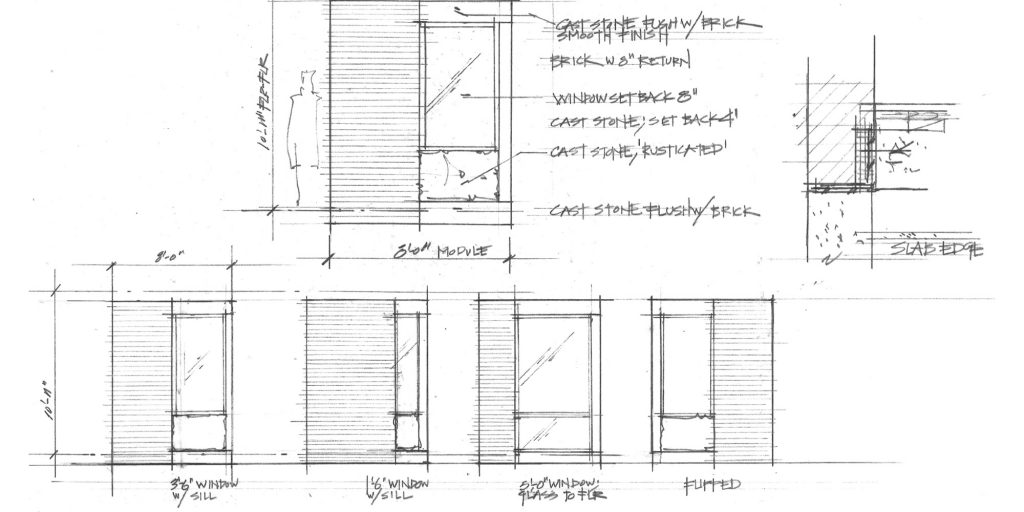 CAST STONE FLUSH W/ BRICK
SMOOTH FINISH
BRICK W 8" RETURN
WINDOW SET BACK 8"
CAST STONE, SET BACK 4"
CAST STONE, 'RUSTICATED'
CAST STONE FLUSH W/ BRICK
8'-0" MODULE
SLAB EDGE
8'-0"
3'6" WINDOW
W/ SILL
1'6" WINDOW
W/ SILL
5'-0" WINDOW:
GLASS TO FLR
FLIPPED